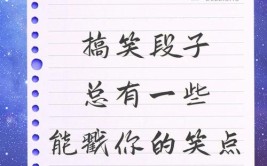 搞笑段子
总有一些
能戳你的笑点